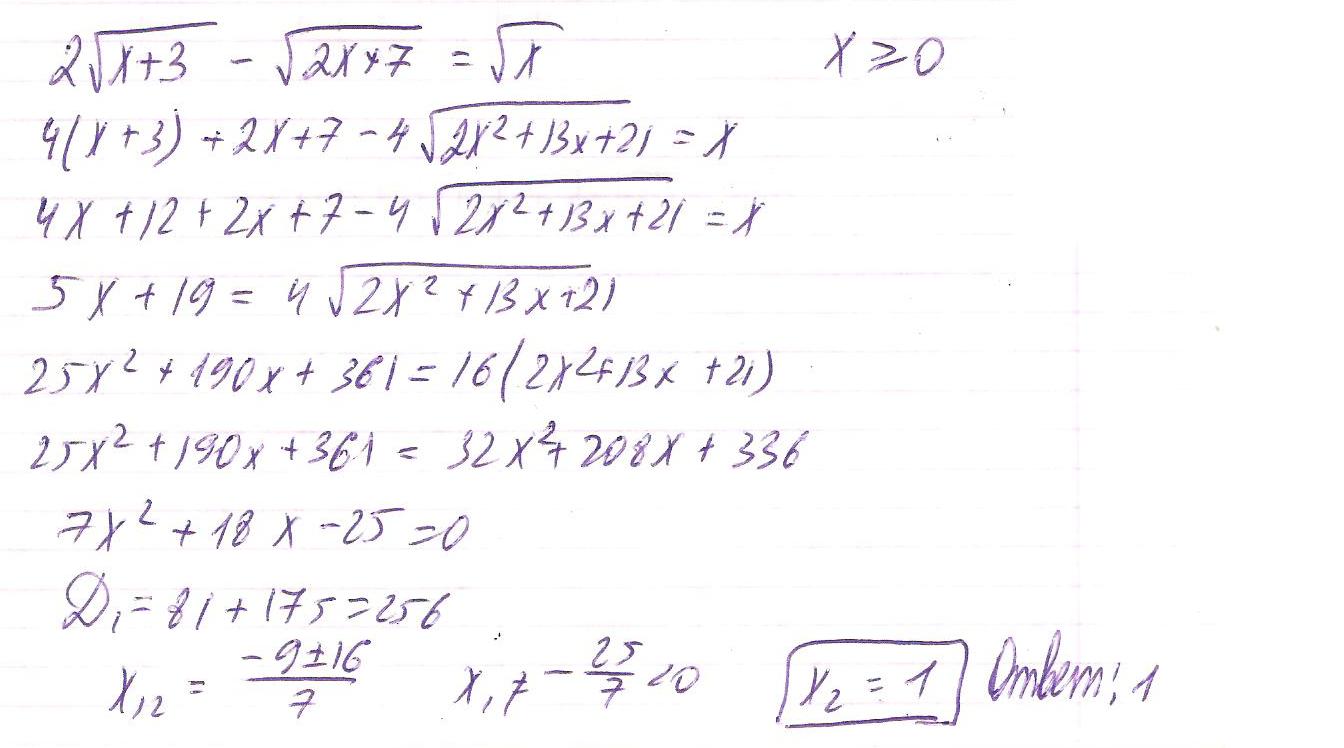 2√(x+3) - √(2x+7) = √x x ≥ 0
4(x+3) + 2x+7 - 4√(2x²+13x+21) = x
4x + 12 + 2x + 7 - 4√(2x²+13x+21) = x
5x + 19 = 4√(2x²+13x+21)
25x² + 190x + 361 = 16(2x²+13x+21)
25x² + 190x + 361 = 32x² + 208x + 336
7x² + 18x - 25 = 0
D₁ = 81 + 175 = 256
x₁,₂ = (-9±16)/7 x₁ = -25/7 < 0 x₂ = 1 Ответ: 1